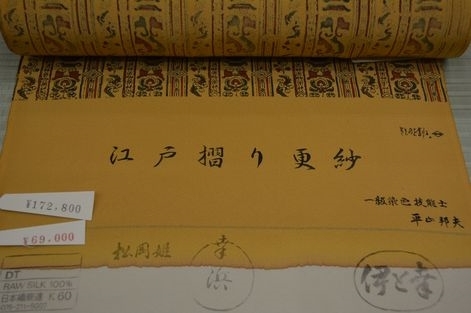 江戸摺り更紗
一級染色技能士
平山邦夫
¥172,800
¥69,000
松岡姫
幸
浜
伊と幸
DT
RAW SILK 100%
日本繊維連 K 60